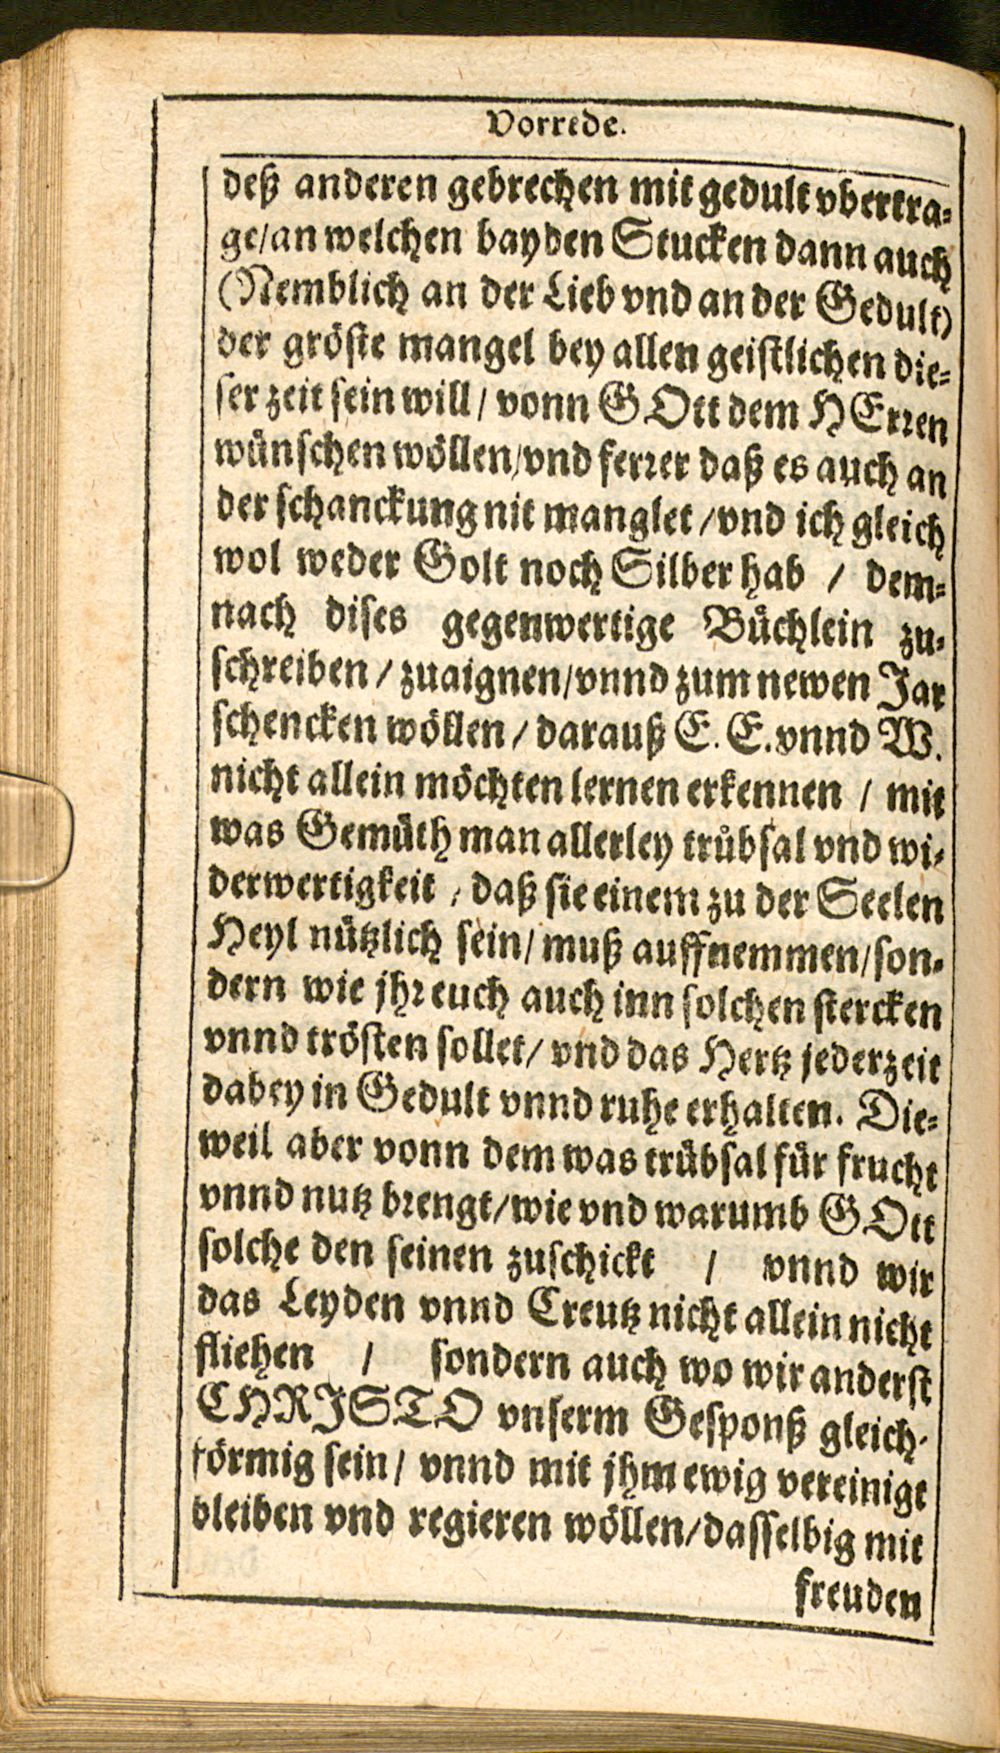 Vorrede.
deß anderen gebrechen mit gedult vbertra-
ge/an welchen bayden Stucken dann auch
(Nemblich an der Lieb vnd an der Gedult)
der gröste mangel bey allen geistlichen die-
ser zeit sein will / vonn GOtt dem HErren
wünschen wöllen/vnd ferrer daß es auch an
der schanckung nit manglet /vnd ich gleich
wol weder Golt noch Silber hab / dem-
nach dises gegenwertige Büchlein zu-
schreiben / zuaignen/vnnd zum newen Jar
schencken wöllen / darauß E. E. vnnd W.
nicht allein möchten lernen erkennen / mit
was Gemüth man allerley trübsal vnd wi-
derwertigkeit , daß sie einem zu der Seelen
Heyl nützlich sein/ muß auffnemmen/son-
dern wie jhr euch auch inn solchen stercken
vnnd trösten sollet/ vnd das Hertz jederzeit
dabey in Gedult vnnd ruhe erhalten. Die-
weil aber vonn dem was trübsal für frucht
vnnd nutz brengt/wie vnd warumb GOtt
solche den seinen zuschickt / vnnd wir
das Leyden vnnd Creutz nicht allein nicht
fliehen / sondern auch wo wir anderst
CHRISTO vnserm Gesponß gleich-
förmig sein / vnnd mit jhm ewig vereinigt
bleiben vnd regieren wöllen/dasselbig mit
freuden